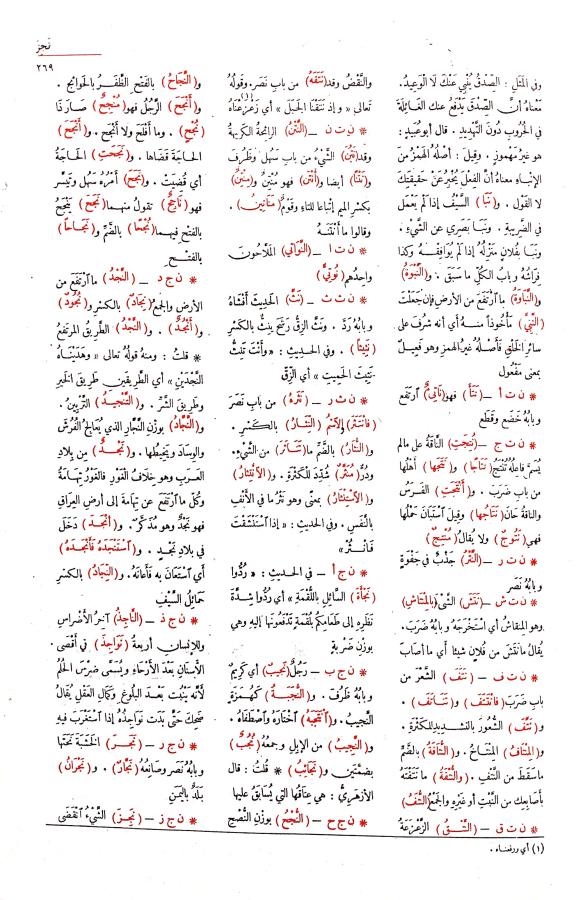 نَجز
٢٦٩
وفى المَثَلِ : الصِّدْقُ يُنْبِي عَنْكَ لَا الوَعِيدُ.
مَعْناهُ أنَّ الصِّدْقَ يَدْفَعُ عنك الغائِلَةَ
فى الحُروبِ دُونَ التَّهْدِيدِ . قال أبو عُبَيْدٍ :
هو غيرُ مَهْموزٍ . وقيلَ : أَصْلُهُ الهَمْزُ من
الإِنباءِ معناهُ أنَّ الفِعْلَ يُخْبِرُ عنْ حَقِيقَتِكَ
لا القول . و(نَبَا) السَّيْفُ إذا لم يَعْمَل
فى الضَّرِيبةِ . ونَبَا بَصَرِي عنِ الشَّيءِ .
ونَبَا بِفُلانٍ مَنْزِلُهُ إذا لم يُوَافِقْهُ وكذا
فِرَاشُهُ وبابُ الكُلِّ ما سَبَقَ . و(النَّبْوَةُ)
و(النَّبَاوَةُ) ما ارْتَفَعَ من الأرضِ فإن جَعَلْتَ
(النَّبِيَّ) مَأخوذًا منهُ أى أنه شَرُفَ على
سائر الخَلْقِ فأَصْلُهُ غيرُ الهَمزِ وهو فَعِيلٌ
بمعنى مَفْعُولٍ
* ن ت أ – (نَتَأَ) فهو (نَاتِئٌ) ارتَفَع
وبابُهُ خَضَعَ وقَطَع
* ن ت ج – (نُتِجَتِ) الناقةُ على مالم
يُسَمَّ فاعِلُهُ تُنْتَجُ (نَتَاجًا) و(نَتَجَها) أهلُها
من بابِ ضَرَبَ . و(أَنْتَجَتِ) الفَرَسُ
والناقةُ حَانَ (نَتَاجُها) وقيلَ اسْتَبَانَ حَمْلُها
فهى (نَتُوجٌ) ولا يُقالُ (مُنْتِجٌ)
* ن ت ر – (النَّتْرُ) جَذْبٌ فى جَفْوَةٍ
وبابُهُ نَصَر
* ن ت ش – (نَتَشَ) الشَّىْءَ (بالمِنْتَاشِ)
وهو المِنْقاشُ أى اسْتَخْرَجَهُ وبابُهُ ضَرَبَ.
يُقالُ ما نَتَشَ من فُلانٍ شيئا أى ما أصابَ
* ن ت ف – (نَتَفَ) الشَّعْرَ من
بابِ ضَرَبَ (فانْتَتَفَ) و(تَنَاتَفَ) .
و(نَتَّفَ) الشُّعُورَ بالتشديدِ للكَثْرَةِ .
و(المِنْتَافُ) المِنْتَاخُ . و(النُّتَافَةُ) بالضَّمِّ
ما سَقَطَ من النَّتْفِ . و(النُّتْفَةُ) ما نَتَفْتَهُ
بأصابِعِك من النَّبْتِ أو غيرِهِ والجَمْعُ (النُّتَفُ)
* ن ت ق – (النَّتْقُ) الزَّعْزَعَةُ
والنَّقْضُ وقد (نَتَقَهُ) من بابِ نَصَر. وقولُهُ
تعالى « و إذ نَتَقْنَا الجَبَلَ » أى زَعْزَعْنَاهُ(١)
* ن ت ن – (النَّتْنُ) الرائحةُ الكَرِيهةُ
وقد (نَتُنَ) الشَّىْءُ من باب سَهُلَ وظَرُفَ
و(نَتْنًا) أيضا و(أَنْتَنَ) فهو مُنْتِنٌ و(مِنْتِنٌ)
بكسرِ الميمِ إتباعا للتاءِ وقَومٌ (مَنَاتِينُ) .
وقالوا ما أَنْتَنَهُ
* ن ت ا – (النَّوَاتِي) المَلَّاحُونَ
واحِدُهم (نُوتِيٌّ)
* ن ث ث – (نَثَّ) الحديثَ أفْشَاهُ
وبابُهُ رَدَّ . ونَثَّ الزِّقُّ رَشَحَ يَنِثُّ بالكسرِ
(نَثِيثًا) . وفى الحديثِ : « وأنْتَ تَنِثُّ
نَثِيثَ الحَمِيتِ » أى الزِّقِّ
* ن ث ر – (نَثَرَهُ) من بابِ نَصَر
(فانْتَثَرَ) والاسْمُ (النِّثَارُ) بالكَسْرِ .
و(النُّثَارُ) بالضَّمِّ ما (تَنَاثَرَ) من الشَّيءِ.
ودُرٌّ (مُنَثَّرٌ) شُدِّدَ للكَثْرَةِ . و(الانْتِثَارُ)
و(الاسْتِنْثَارُ) بمعنًى وهو نَثْرُ ما فى الأنفِ
بالنَّفَسِ . وفى الحديثِ : « إذا اسْتَنْشَقْتَ
فَانْثُرْ »
* ن ج أ – فى الحديثِ : « رُدُّوا
(نَجْأَةَ) السائِلِ باللُّقْمَةِ » أى رُدُّوا شِدَّةَ
نَظَرِهِ إلى طَعامِكُم بلُقْمَةٍ تَدْفَعُونَها إليه وهى
بوزنِ ضَرْبةٍ
* ن ج ب – رَجُلٌ (نَجِيبٌ) أى كَرِيمٌ
وبابُهُ ظَرُفَ . و(النُّجَبَةُ) كَهُمَزَةٍ
النَّجِيبُ . و(انْتَجَبَهُ) اختارَهُ واصْطَفَاهُ .
و(النَّجِيبُ) من الإبِلِ وجمعُهُ (نُجُبٌ)
بضَمَّتَينِ و(نَجَائِبُ) * قلتُ : قال
الأزهَرِىُّ : هى عِتاقُها التى يُسابَقُ عليها
* ن ج ح – (النُّجْحُ) بوَزْنِ النُّصْحِ
و(النَّجَاحُ) بالفتحِ الظَّفَرُ بالحَوائِجِ .
و(أَنْجَحَ) الرَّجُلُ فهو (مُنْجِحٌ) صارَ ذا
(نُجْحٍ) . وما أَفْلَحَ ولا أَنْجَحَ . و(أَنْجَحَ)
الحاجَةَ قَضَاها . و(نَجَحَتِ) الحاجَةُ
أى قُضِيَتْ . و(نَجَحَ) أَمْرُهُ سَهُلَ وتَيَسَّر
فهو (نَاجِحٌ) تقولُ منهما (نَجَحَ) يَنْجَحُ
بالفتحِ فيهما (نُجْحًا) بالضَّمِّ و(نَجَاحًا)
بالفتحِ
* ن ج د – (النَّجْدُ) ما ارتَفَعَ من
الأرضِ والجمعُ (نِجَادٌ) بالكسرِ و(نُجُودٌ)
و(أَنْجُدٌ) . و(النَّجْدُ) الطَّرِيقُ المرتفعُ
* قلتُ : ومنهُ قولُهُ تعالى « وهَدَيْنَاهُ
النَّجْدَيْنِ » أى الطَّرِيقَينِ طَرِيقَ الخَيرِ
وطَرِيقَ الشَّرِّ . و(التَّنْجِيدُ) التَّزْيِينُ .
و(النَّجَّادُ) بوزنِ النَّجَّارِ الذى يُعالِجُ الفُرُشَ
والوِسادَ ويَخِيطُها . و(نَجْدٌ) من بِلادِ
العَرَبِ وهو خِلافُ الغَوْرِ فالغَوْرُ تِهامَةُ
وكُلُّ ما ارتفَعَ عن تِهامةَ إلى أرضِ العِراقِ
فهو نَجْدٌ وهو مُذَكَّرٌ . و(أَنْجَدَ) دَخَلَ
فى بلادِ نَجْدٍ . و(اسْتَنْجَدَهُ فَأَنْجَدَهُ)
أى اسْتَعَانَ به فأَعَانَهُ . و(النِّجَادُ) بالكسرِ
حَمَائِلُ السَّيْفِ
* ن ج ذ – (النَّاجِذُ) آخِرُ الأضْراسِ
وللإنسانِ أربعةُ (نَوَاجِذَ) فى أقْصَى
الأسنانِ بعدَ الأرْحَاءِ ويُسَمَّى ضِرْسَ الحُلُمِ
لأنَّهُ يَنْبُتُ بعدَ البُلُوغِ وكَمالِ العَقْلِ يُقالُ
ضَحِكَ حتَّى بَدَتْ نَوَاجِذُهُ إذا اسْتَغْرَبَ فيه
* ن ج ر – (نَجَرَ) الخَشَبَةَ نَحَتَها
وبابُهُ نَصَرَ وصانِعُهُ (نَجَّارٌ) . و(نَجْرَانُ)
بَلَدٌ باليَمَنِ
* ن ج ز – (نَجَزَ) الشَّىْءُ انْقَضَى
(١) أى ورفعناه .